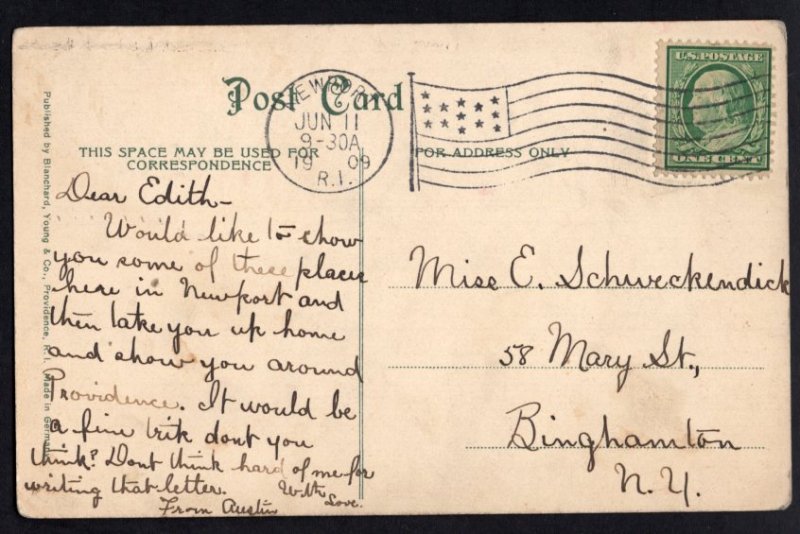 Post Card
THIS SPACE MAY BE USED FOR
CORRESPONDENCE
FOR ADDRESS ONLY
NEWPORT
JUN 11
9-30A
1909
R.I.
U.S. POSTAGE
ONE CENT
Published by Blanchard, Young & Co., Providence, R. I. Made in Germany
Dear Edith-
Would like to show
you some of these places
here in Newport and
then take you up home
and show you around
Providence. It would be
a fine trik dont you
think? Dont think hard of me for
writing that letter. With
Love.
From Austin
Miss E. Schweckendick
58 Mary St.,
Binghamton
N.Y.